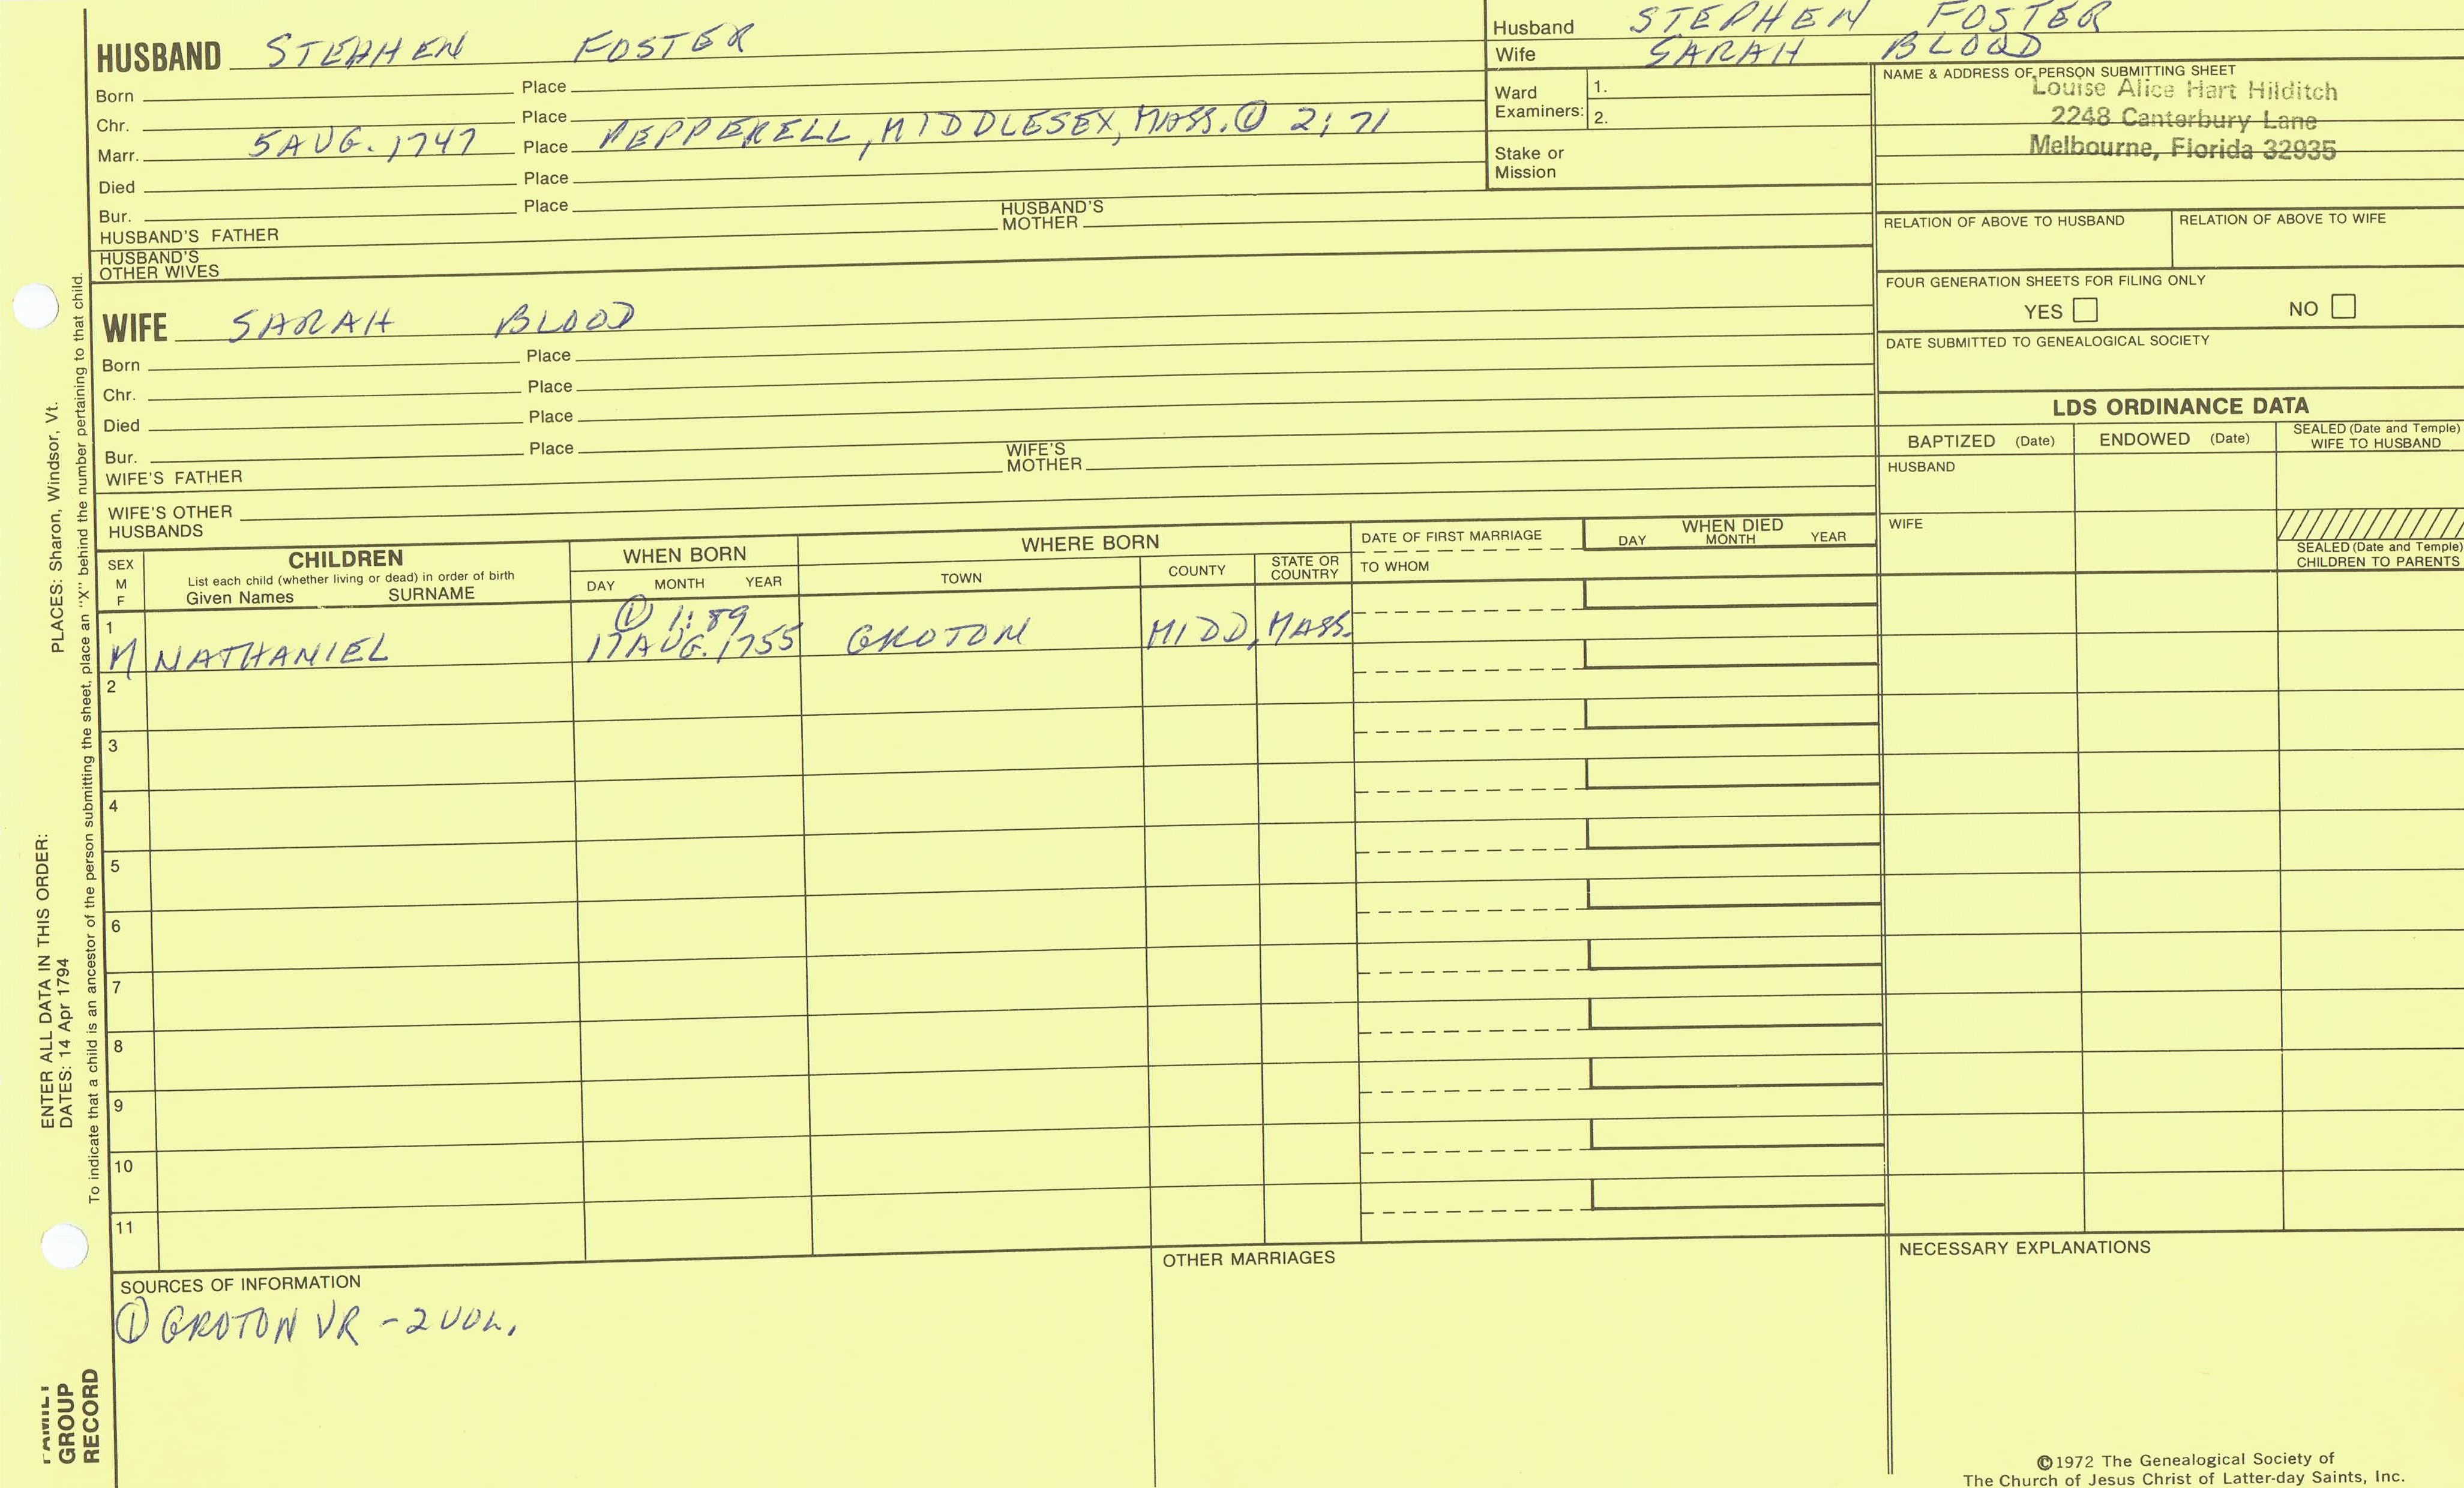 HUSBAND STEPHEN FOSTER
Born Place
Chr. Place
Marr. 5 AUG. 1747 Place PEPPERELL, MIDDLESEX, MASS. ① 2:71
Died Place
Bur. Place
HUSBAND'S FATHER HUSBAND'S MOTHER
HUSBAND'S OTHER WIVES
Husband STEPHEN FOSTER
Wife SARAH BLOOD
Ward Examiners: 1.
2.
Stake or Mission
NAME & ADDRESS OF PERSON SUBMITTING SHEET
Louise Alice Hart Hilditch
2248 Canterbury Lane
Melbourne, Florida 32935
RELATION OF ABOVE TO HUSBAND RELATION OF ABOVE TO WIFE
FOUR GENERATION SHEETS FOR FILING ONLY
YES NO
DATE SUBMITTED TO GENEALOGICAL SOCIETY
WIFE SARAH BLOOD
Born Place
Chr. Place
Died Place
Bur. Place
WIFE'S FATHER WIFE'S MOTHER
WIFE'S OTHER HUSBANDS
LDS ORDINANCE DATA
BAPTIZED (Date) ENDOWED (Date) SEALED (Date and Temple) WIFE TO HUSBAND
HUSBAND
WIFE
SEALED (Date and Temple) CHILDREN TO PARENTS
SEX M F
CHILDREN
List each child (whether living or dead) in order of birth
Given Names SURNAME
WHEN BORN
DAY MONTH YEAR
WHERE BORN
TOWN COUNTY STATE OR COUNTRY
DATE OF FIRST MARRIAGE
TO WHOM
WHEN DIED
DAY MONTH YEAR
① 1:89
1 M NATHANIEL 17 AUG. 1755 GROTON MIDD, MASS.
2
3
4
5
6
7
8
9
10
11
SOURCES OF INFORMATION
① GROTON VR - 2 VOL.
OTHER MARRIAGES
NECESSARY EXPLANATIONS
©1972 The Genealogical Society of
The Church of Jesus Christ of Latter-day Saints, Inc.
PLACES: Sharon, Windsor, Vt.
ENTER ALL DATA IN THIS ORDER:
DATES: 14 Apr 1794
To indicate that a child is an ancestor of the person submitting the sheet, place an "X" behind the number pertaining to that child.
FAMILY
GROUP
RECORD